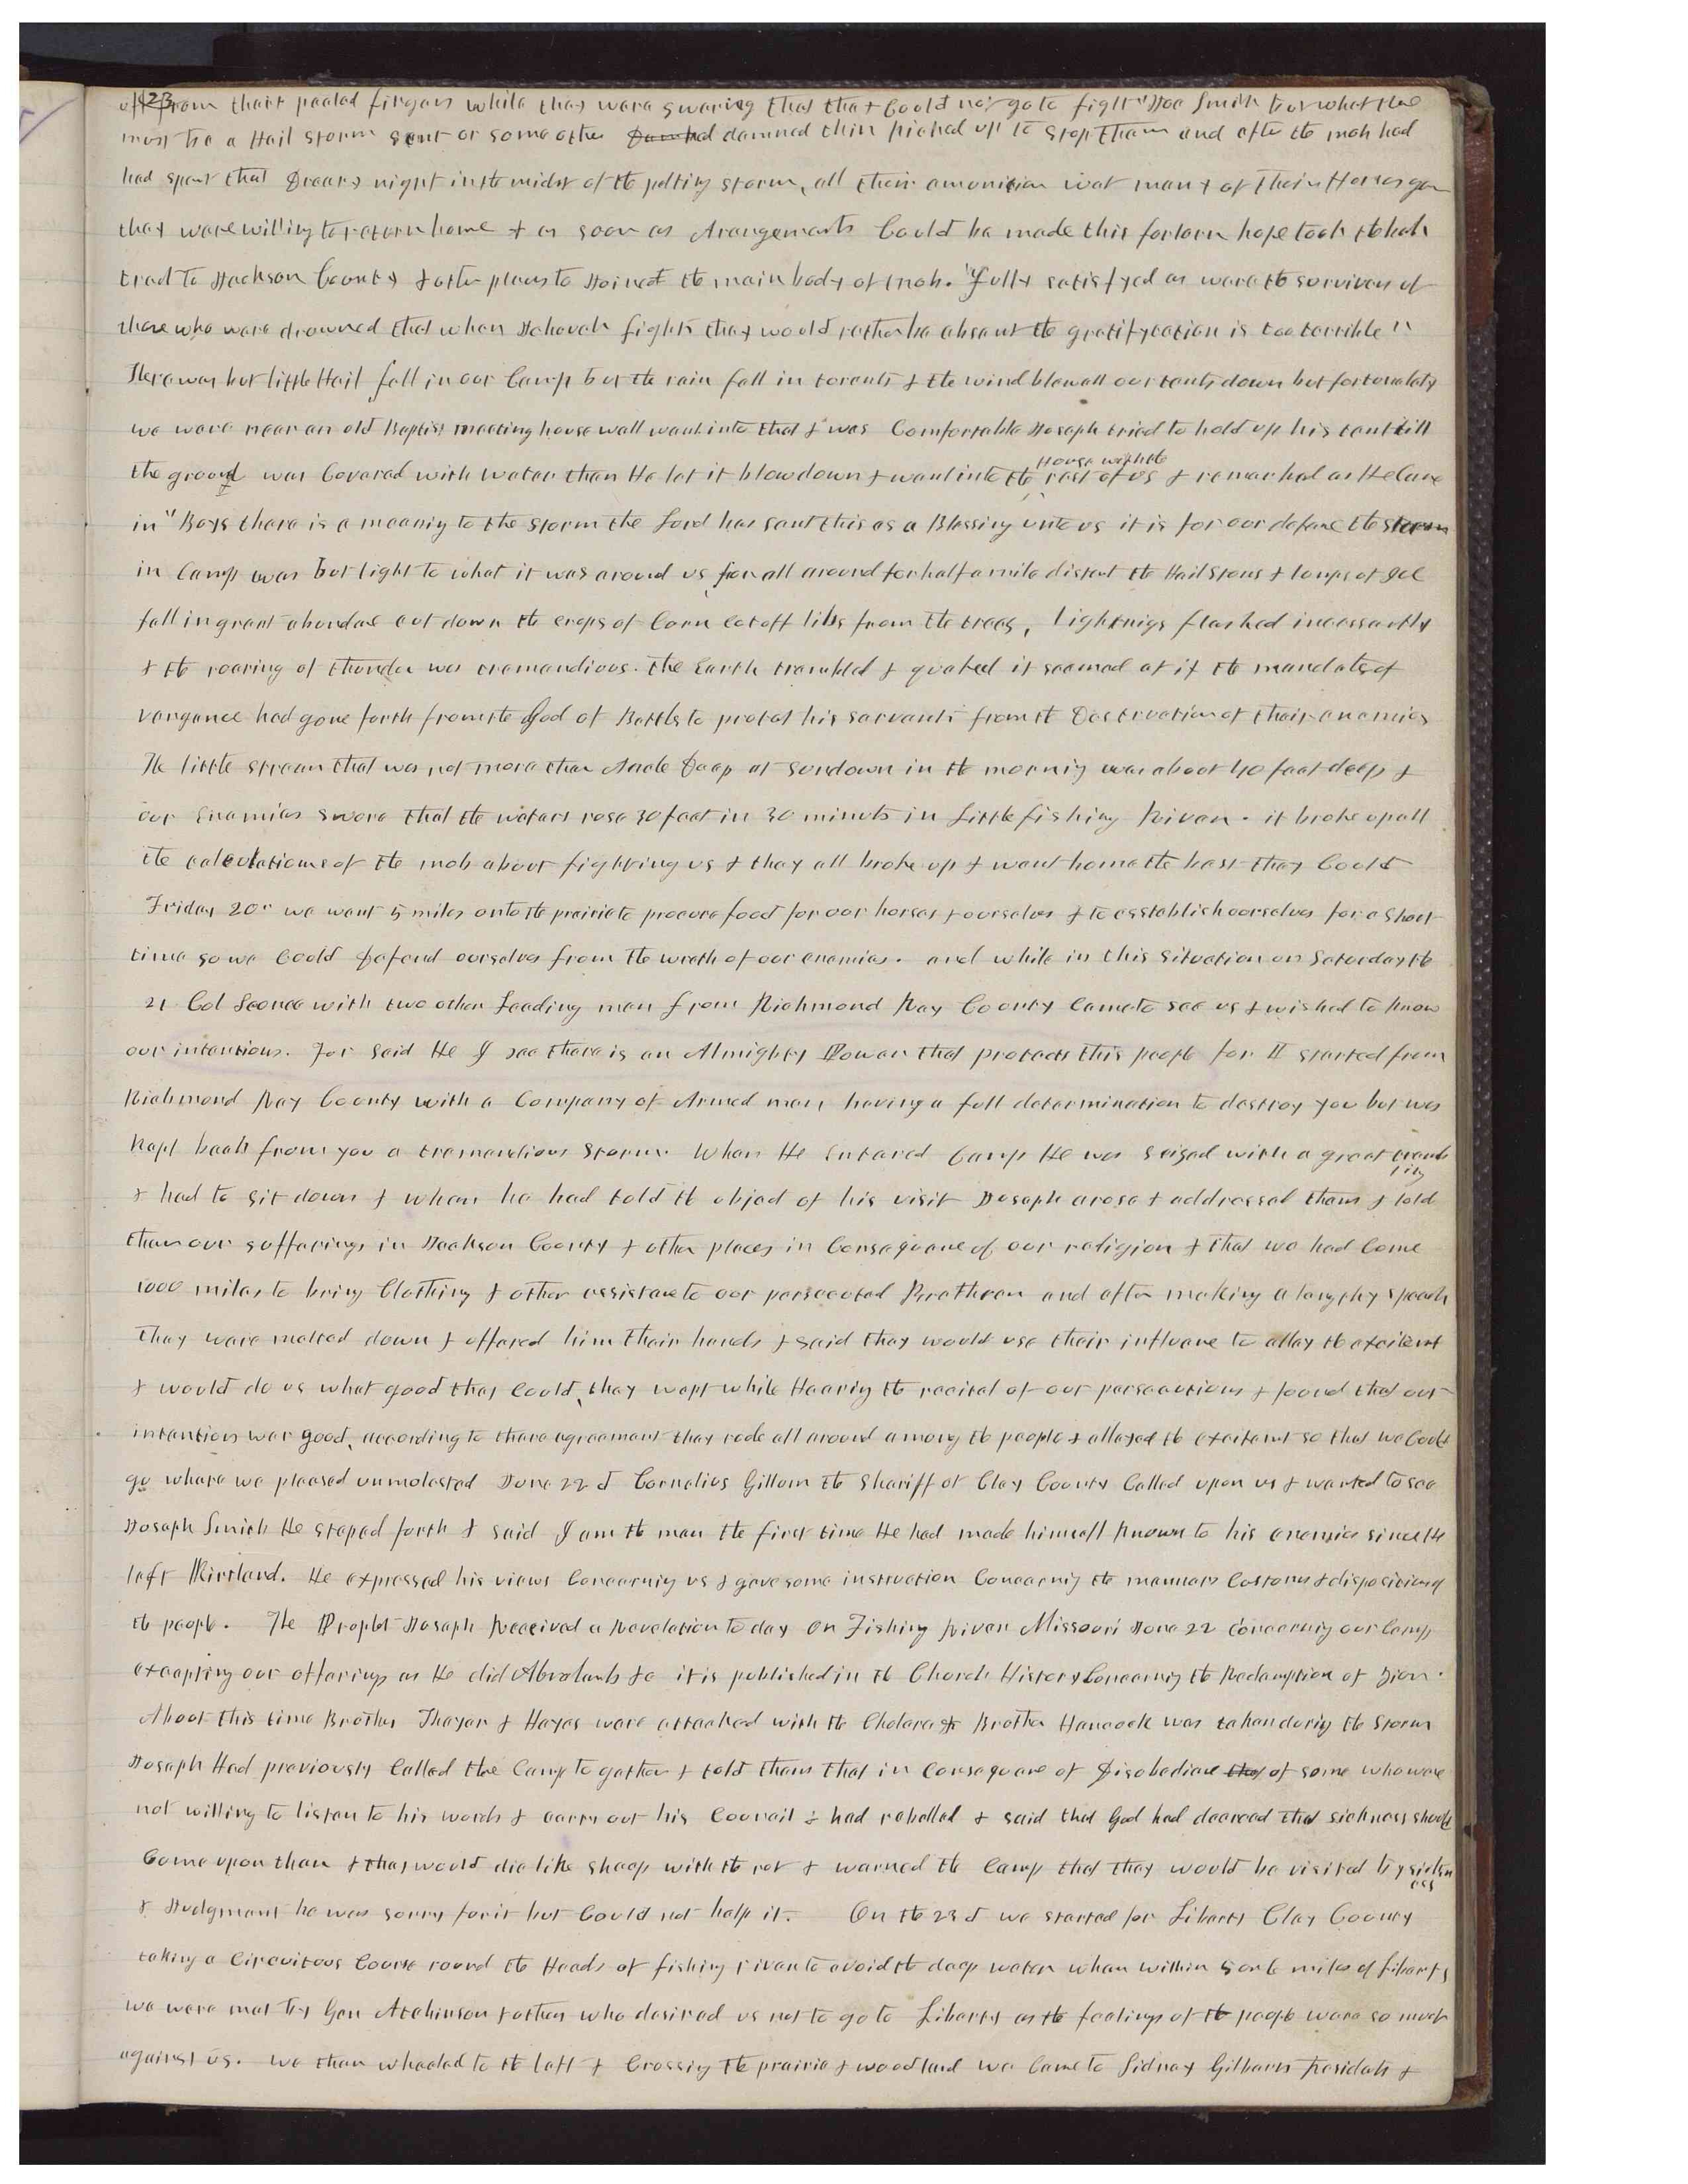 123
off from their pealed fingers while they were swaring that they Could not go to fight "Joe Smith but what there
must be a Hail storm sent or some other damned thin picked up to stop them and after the mob had
had spent that Dreary night in the midst of the pelting storm, all their amonition wet many of their Horses gon
they were willing to return home & as soon as Arangements Could be made this forlorn hope took the back
tracd to Jackson County & other places to Joined the main body of mob. "Fully satisfyed as were the survivers of
those who were drowned that when Jehovah fights they would rather be absent the gratifycation is too terrible"
There was but little Hail fell in our Camp but the rain fell in torents & the wind blew all our tents down but fortunately
we were near an old Baptist meeting house wall went into that & was Comfortable Joseph tried to hold up his tent till
the ground was Covered with water then He let it blow down & went into the House with the rest of us & remarked as He Came
in "Boys there is a meaniy to the storm the Lord has sent this as a Blessing unto us it is for our defence the storm
in Camp was but light to what it was around us for all around for half a mile distent the Hail Stons & lumps of Ice
fell in great abundace cut down the crops of Corn cut off libs from the trees, Lightnigs flashed incessantly
& the roaring of thunder was tremandious. The Earth trembled & quaked it seemed as if the mandates of
vengance had gone forth from the God of Battls to protet his servants from the Destruction of their enemies
The little stream that was not more than Ancle Deep at sundown in the mornig was about 40 feet deep &
our Enemies swore that the waters rose 30 feet in 30 minuts in Little fishing River. it broke up all
the calculations of the mob about fighting us & they all broke up & went home the best they Could
Friday 20th we went 5 miles onto the prairie to procure food for our horses & ourselves & to esstablish ourselves for a short
time so we Could Defend ourselves from the wreth of our enemies. and while in this situation on Saturday the
21 Col Sconce with two other Leading men from Richmond Ray County Came to see us & wished to know
our intentions. For said He I see there is an Almighty Power that protects this people for I started from
Richmond Ray County with a Company of Armed men having a full determination to destroy you but was
kept back from you a tremandious storm. When He Entered Camp He was seized with a great tremb
ling
& had to sit down & when he had told the object of his visit Joseph arose & addressed them & told
them our sufferings in Jackson County & other places in Consequence of our religion & that we had Come
1000 miles to bring Clothing & other assistance to our persecuted Brethren and after making a lengthy speech
they were melted down & offered him their hands & said they would use their influance to allay the exeitent
& would do us what good they Could, they wept while Hearig the recital of our persecutions & found that our
intentions war good, according to there agreement they rode all around among the people & allayed the exeitement so that we Could
go where we pleased unmolested June 22d Cornelius Gillom the Shariff of Clay County Called upon us & wanted to see
Joseph Smith He steped forth & said I am the man the first time He had made himself known to his enemies since He
left Kirtland. He expressed his views Concernig us & gave some instruction Concernig the manners Customs & disposition of
the people. The Prophet Joseph Received a Revelation to day On Fishing River Missouri June 22 Concernig our Camp
excepting our offerings as He did Abrahams &c it is published in the Church History Concernig the Redemption of Zion.
About this time Brothers Thayer & Hayes were attacked with the Cholera & Brother Hancock was taken durig the storm
Joseph Had previously Called the Camp to gather & told them that in Consequence of Disobedience of some who were
not willing to listen to his words & carry out his Council & had rebelled & said that God had decreed that sickness should
Come upon them & they would die like sheep with the rot & warned the Camp that they would be visited by sickn
ess
& Judgment he was sorry for it but Could not help it. On the 23d we started for Liberty Clay County
taking a Circuitous Course round the Heads of fishing river to avoid the deep water when within 5 or 6 miles of Liberty
we were met by Gen Atchinson & others who desired us not to go to Liberty as the feelings of the people were so much
against us. we then wheeled to the left & Crossing the prairie & woodland we Came to Sidney Gilberts Residets &